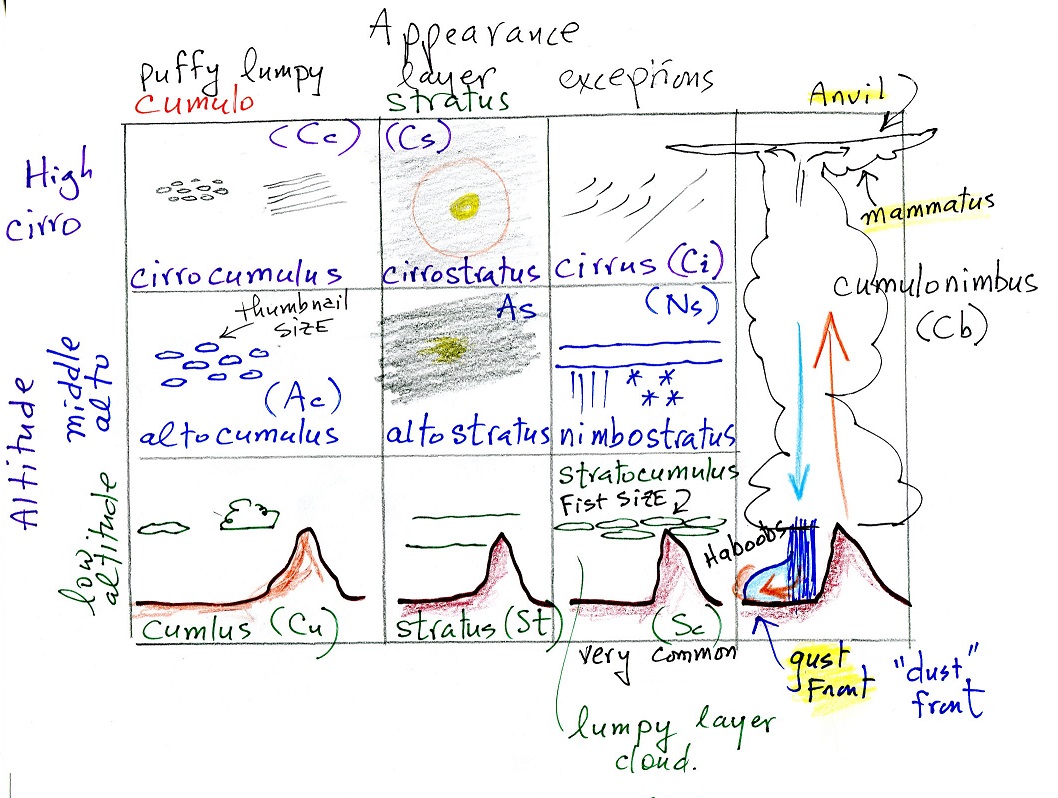 Appearance
puffy lumpy
layer
exceptions
cumulo
stratus
Anvil
High
cirro
(Cc)
(Cs)
mammatus
cirrocumulus
cirrostratus
cirrus (Ci)
cumulonimbus
(Cb)
Altitude
middle
alto
thumbnail
SIZE
As
(Ns)
(Ac)
* *
* *
altocumulus
altostratus
nimbostratus
low
altitude
stratocumulus
Fist SIZE
Haboobs
cumlus (Cu)
stratus (St)
(Sc)
very common
gust
Front
"dust"
front
lumpy layer
cloud.